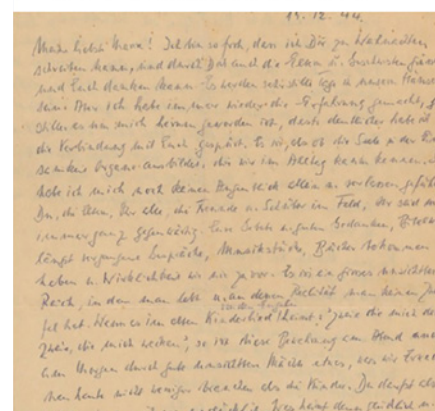 19.12.44.
Meine liebste Maria! Ich bin so froh, dass ich Dir zu Weihnachten
schreiben kann, und durch Dich auch die Eltern u. Geschwister grüs
und Euch danken kann. Es werden sehr stille Tage in unsern Häuse
sein. Aber ich habe immer wieder die Erfahrung gemacht, j
stiller es um mich herum geworden ist, desto deutlicher habe ich
die Verbindung mit Euch gespürt. Es ist, als ob die Seele in der Ein
samkeit Organe ausbildet, die wir im Alltag kaum kennen. So
habe ich mich noch keinen Augenblick allein u. verlassen gefühlt
Du, die Eltern, Ihr alle, die Freunde u. Schüler im Feld, Ihr seid mir
immer ganz gegenwärtig. Eure Gebete u. guten Gedanken, Bibelw
längst vergangene Gespräche, Musikstücke, Bücher bekommen
Leben u. Wirklichkeit wie nie zuvor. Es ist ein grosses unsichtbares
Reich, in dem man lebt u. an dessen Realität man keinen Zwei
fel hat. Wenn es im alten Kinderlied von den Engeln heisst: „zweie die mich de
zweie, die mich wecken", so ist diese Bewahrung am Abend und
am Morgen durch gute unsichtbare Mächte etwas, was wir Erwach
senen heute nicht weniger brauchen als die Kinder. Du darfst also
unglücklich. Was heisst denn glücklich u.